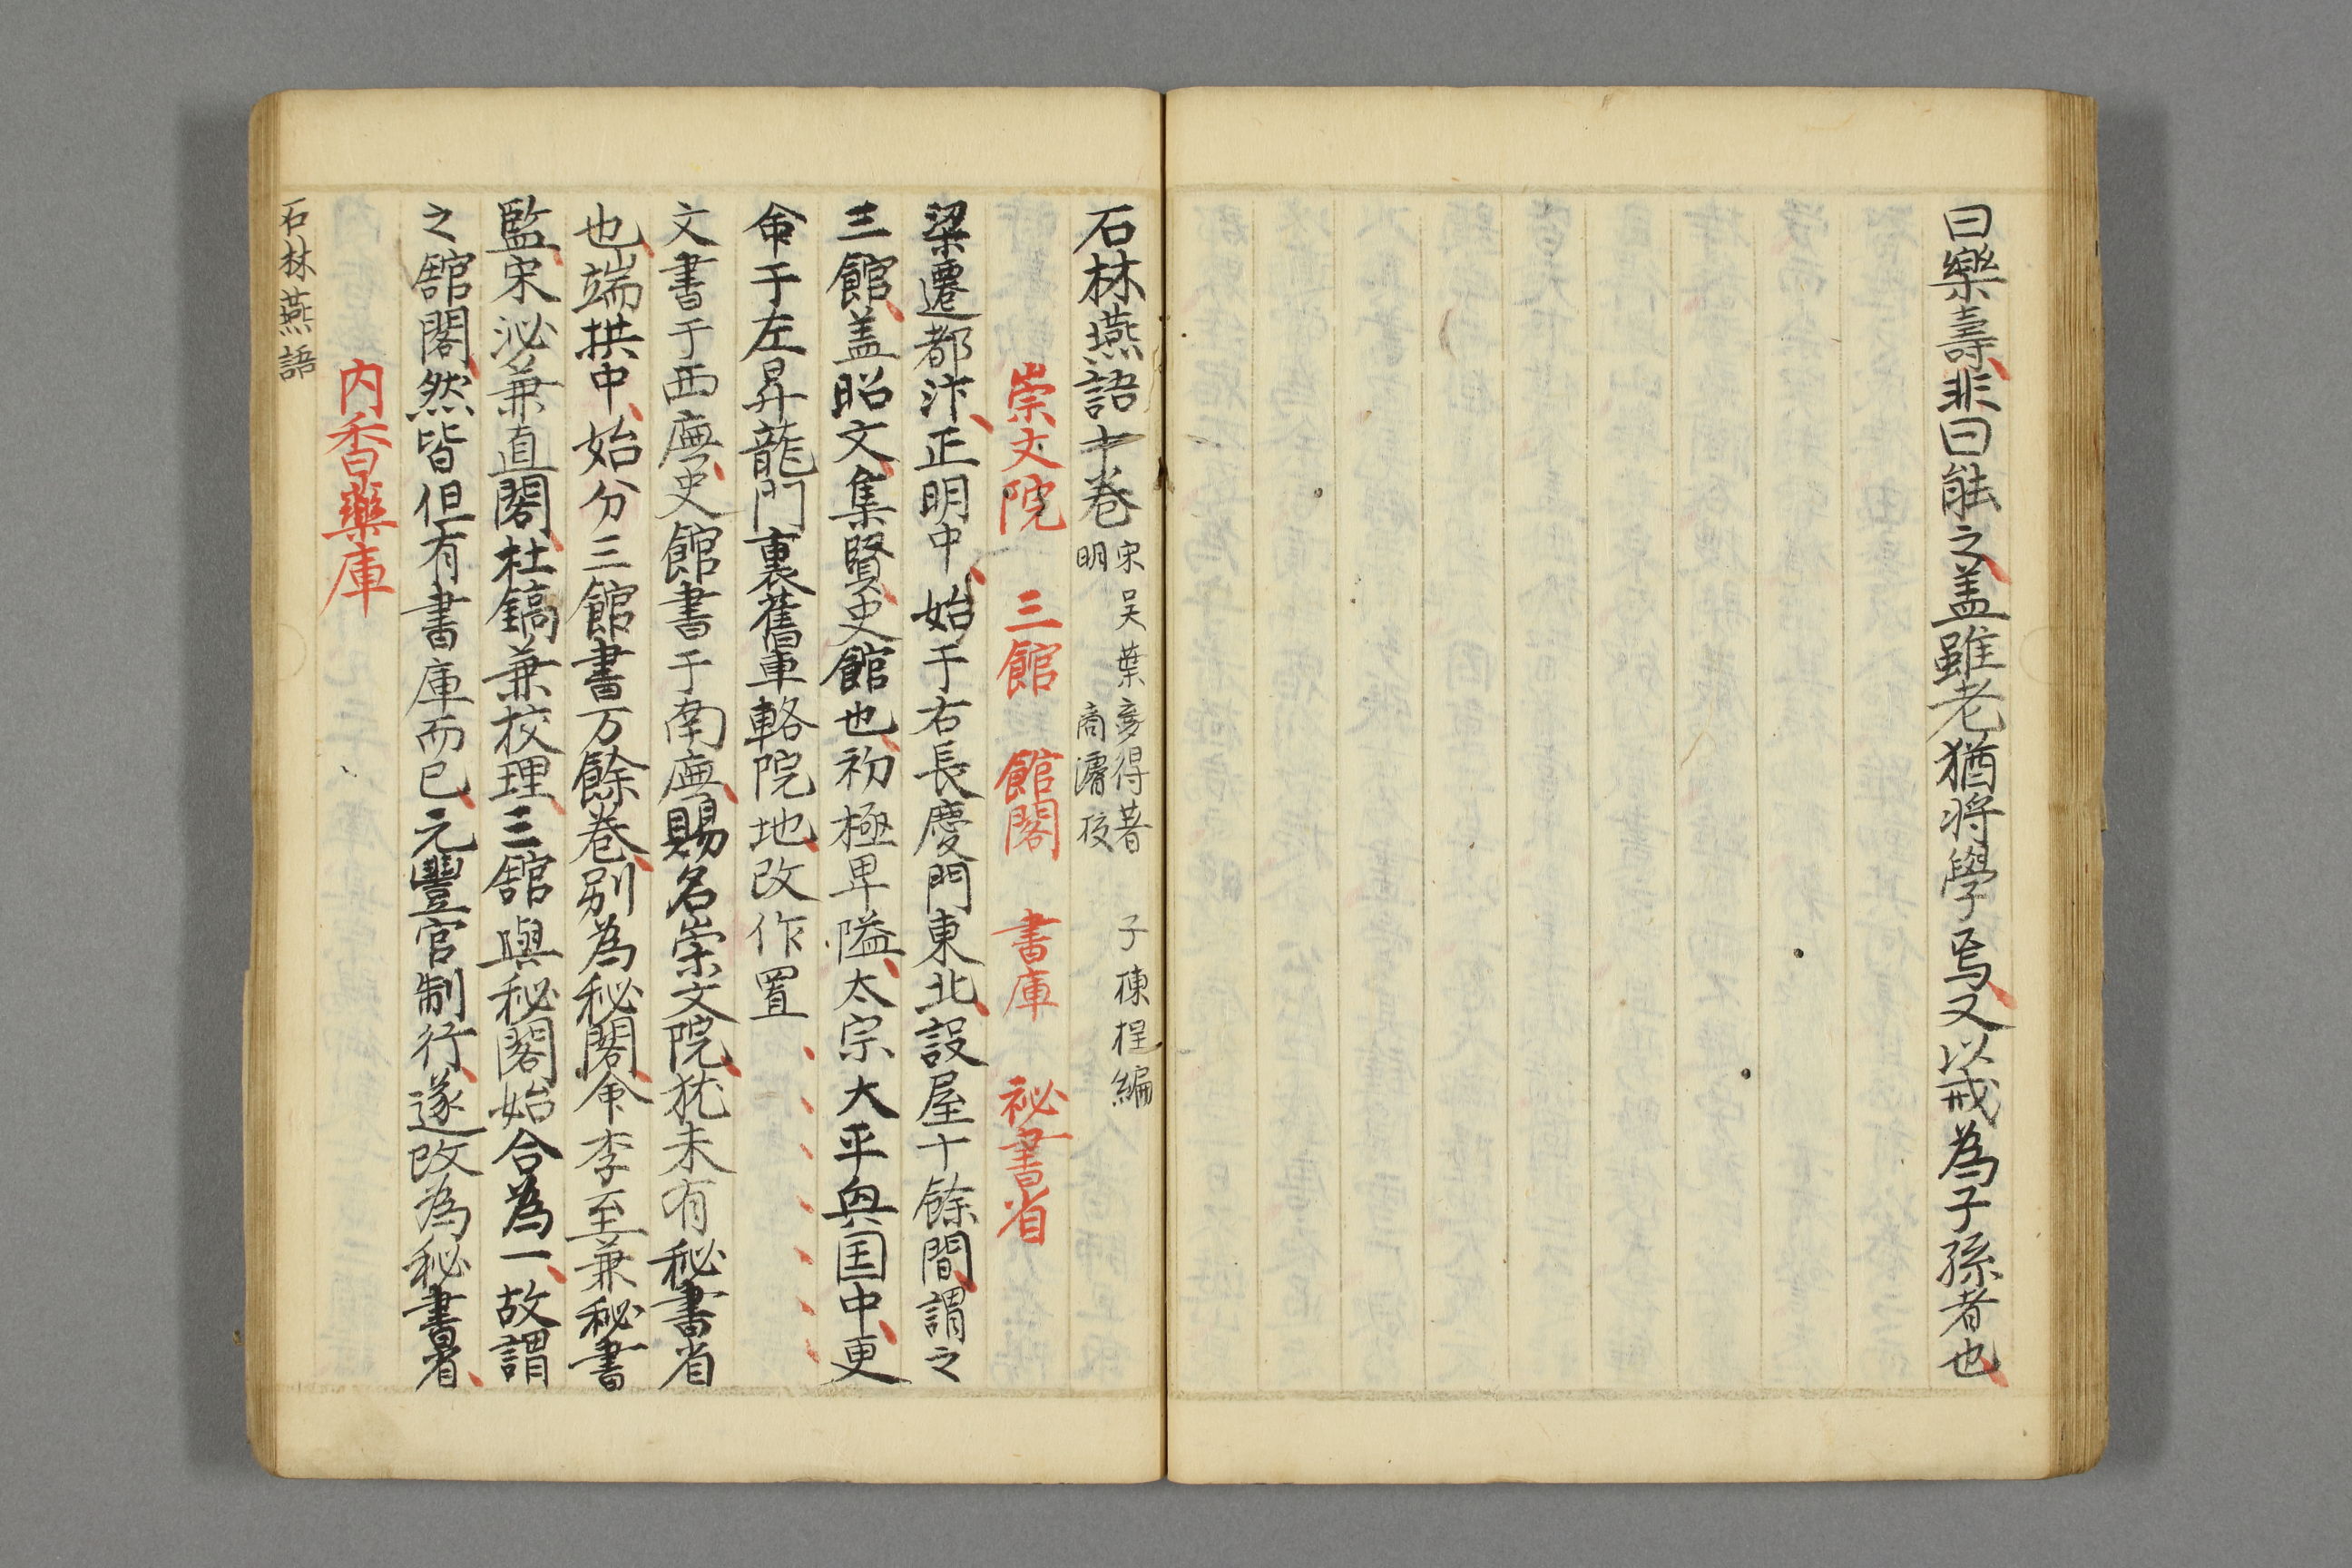 曰樂壽非曰能之盖雖老猶将學焉又以戒為子孫者也
石林燕語十卷 宋 吴 葉夢得著 子 棟 桯 編
明 商濬校
崇文院 三館 館閣 書庫 祕書省
梁遷都汴正明中始于右長慶門東北設屋十餘間謂之
三館盖昭文集賢史館也初極卑隘太宗大平興国中更
命于左昇龍門裏舊車輅院地改作置
文書于西廡史館書于南廡賜名崇文院犹未有秘書省
也端拱中始分三館書万餘巻别為秘閣命李至兼秘書
監宋泌兼直閣杜鎬兼校理三舘與秘閣始合為一故謂
之舘閣然皆但有書庫而已元豐官制行遂改為秘書省
内香藥庫
石林燕語